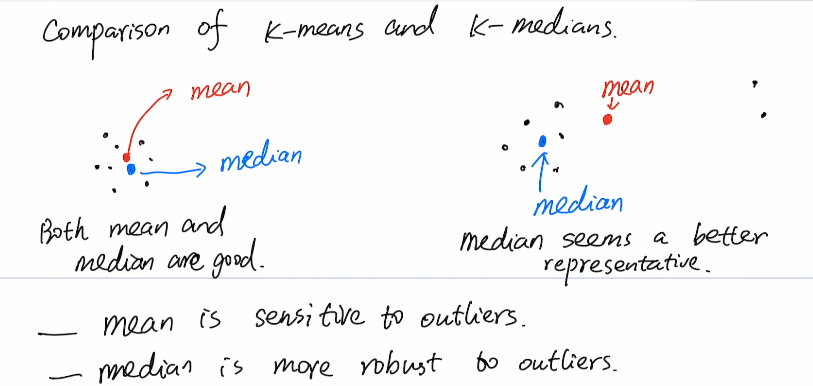 Comparison of K-means and K-medians.
mean
median
Both mean and
median are good.
mean
median
median seems a better
representative.
— mean is sensitive to outliers.
— median is more robust to outliers.